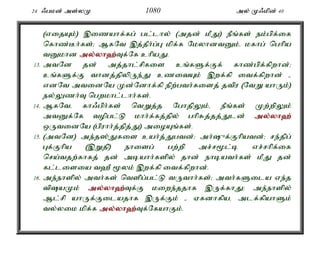 24 ஃபமன் அள்லமு 1080 அல் மூஃமின் 40
(எதையும்) இணையாக்கப் பட்டால் (அதன் மீது) நீங்கள் நம்பிக்கை
கொண்டீர்கள்; ஆகவே இத்தீர்ப்பு மிக்க மேலானவனும், மகாப் பெரிய
வனுமான அல்லாஹ்வுக்கே உரியது.
13. அவனே தன் அத்தாட்சிகளை உங்களுக்குக் காண்பிக்கிறான்;
உங்களுக்கு வானத்திலிருந்து உணவையும் இறக்கி வைக்கிறான் -
எனவே அவனையே முன்னோக்கி நிற்பவர்களைத் தவிர (வேறு யாரும்)
நல்லுணர்வு பெறமாட்டார்கள்.
14. ஆகவே, காஃபிர்கள் வெறுத்த போதிலும், நீங்கள் முற்றிலும்
அவனுக்கே வழிபட்டு மார்க்கத்தில் பரிசுத்தத்துடன் அல்லாஹ்
ஒருவனையே (பிரார்த்தித்து) அழையுங்கள்.
15. (அவனே) அந்தஸ்துகளை உயர்த்துபவன்; அர்ஷுக்குரியவன்; சந்திப்
புக்குரிய (இறுதி) நாளைப் பற்றி அச்சமூட்டி எச்சரிக்கை
செய்வதற்காகத் தன் அடியார்களில் தான் நாடியவர்கள் மீது தன்
கட்டளையை வஹீ மூலம் இறக்கி வைக்கிறான்.
16. அந்நாளில் அவர்கள் வெளிப்பட்டு வருவார்கள்; அவர்களுடைய எந்த
விஷயமும் அல்லாஹ்வுக்கு மறைந்ததாக இருக்காது; அந்நாளில்
ஆட்சி யாருக்குடையதாக இருக்கும் - ஏகனாகிய, அடக்கியாளும்
வல்லமை மிக்க அல்லாஹ்வுக்கேயாகும்.